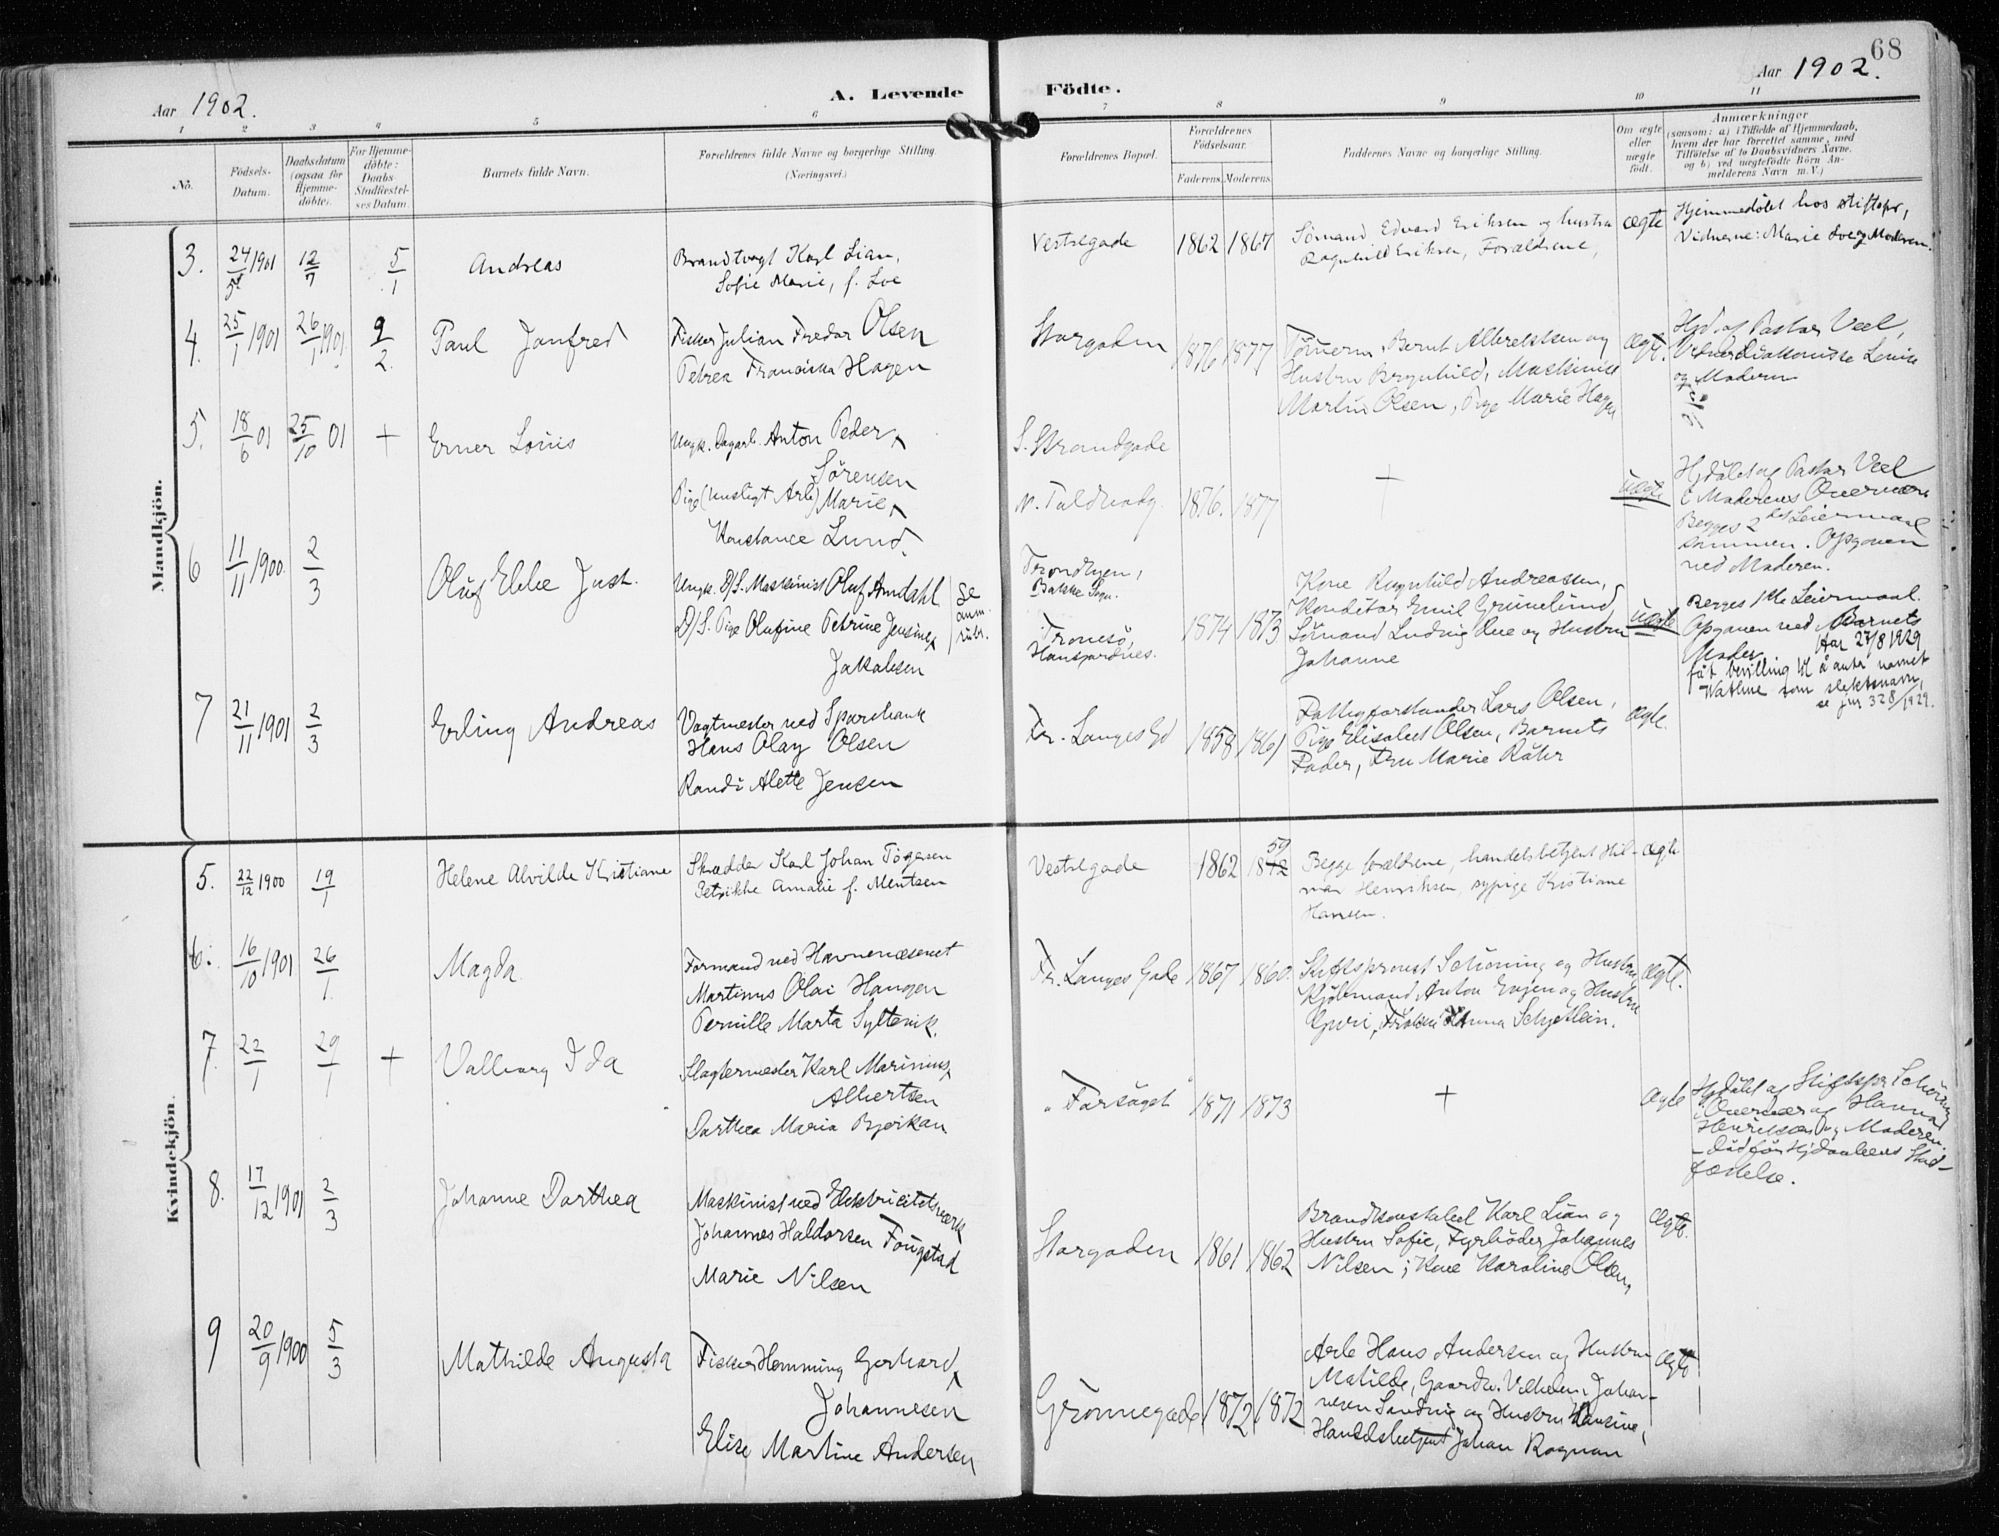 68
Aar 1902.
A. Levende Födte.
Aar 1902.
1 2 3 4 5 6 7 8 9 10 11
Nö.
Födsels-Datum.
Daabsdatum (ogsaa for Hjemme-döbte).
For Hjemme-döbte: Daabs-Stadfæstel-ses Datum.
Barnets fulde Navn.
Forældrenes fulde Navne og borgerlige Stilling.
(Næringsvei.)
Forældrenes Bopæl.
Forældrenes Födselsaar.
Faderens. Moderens.
Faddernes Navne og borgerlige Stilling.
Om ægte eller uægte födt.
Anmærkninger
(saasom: a) i Tilfælde af Hjemmedaab,
hvem der har forrettet samme, med
Tilföielse af to Daabsvidners Navne.
og b) ved uægtefödte Börn An-
melderens Navn m. V.)
Mandkjön.
3. 24/5 1901 12/7 5/1 Andreas
Brandvagt Karl Lian,
Sofie Marie, f. Loe
Vestregade 1862 1867
Sömand Edvard Eriksen og hustru
Ragnhild Eriksen, Forældrene,
ægte
Hjemmedöbt hos stiftspr,
Vidnerne: Marie Loe og Moderen.
4. 25/1 1901 26/1 1901. 9/2. Paul Janfred
Fisker Julian Fredor Olsen
Petrea Franciska Hagen
Storgaden 1876 1877
Tömerm. Bernt Albrektsen og
Hustru Brynhild, Maskinist
Martin Olsen, Pige Marie Hagen
Ægte.
Hjd. af Pastor Veel,
Vidner Diakonisse Louise
og Moderen
5. 18/6 01 25/10 01 + Erner Louis
Ungk. Dagarb. Anton Peder
Sörensen
Pige (husligt Arb) Marie
Konstance Lund.
S. Strandgade
N. Toldbodg. 1876. 1877
+
uægte
Hjdöbt af Pastor Veel
i Moderens Overvære
Begges 2det Leiermaal
sammen. Opgaven
ved Moderen.
6 11/11 1900. 2/3 Oluf Ebbe Just.
Ungk. D/S. Maskinist Oluf Amdahl
D/S. Pige Olufine Petrine Jensine
Jakobsen
se anm. rubr.
Trondhjem,
Bakke Sogn.
Tromsö,
Hansjordnes.
1874 1873
Kone Ragnhild Andreassen,
Konditor Emil Grünelund,
Sömand Ludvig Lue og Hustru
Johanne
uægte
Begges 1ste Leiermaal.
Opgaven ved Barnets
Moder. Har 27/8 1929
fåt bevilling til å anta navnet
Watline som slektsnavn,
se jnr 328/1929.
7 21/11 1901 2/3 Erling Andreas
Vagtmester ved Sparebank
Hans Olay Olsen
Randi Alette Jensen
Fr. Langes Gd 1858 1861
Fattigforstander Lars Olsen,
Pige Elisabet Olsen, Barnets
Fader, Fru Marie Röhr
Ægte.
Kvindekjön.
5. 22/12 1900 19/1 Helene Alvilde Kristiane
Skrædder Karl Johan Tögersen
Petrikke Amalie f. Mentsen
Vestregade 1862 1872 59
Begge forældrene, handelsbetjent Hil-
mar Henriksen, sypige Kristiane
Hansen.
ægte
6. 16/10 1901 26/1. Magda
Formand ved Havnevæsenet
Martinus Olai Haugen
Pernille Marta Sylterik.
Fr. Langes Gade 1867 1860.
Stiftsprovst Schöning og Hustru
Kjöbmand Anton Evjen og Hustru
Guri, Fröken Hanna Schjetlein.
Ægte.
7. 22/1 29/1 + Valborg Ida
Slagtermester Karl Marinius
Albertsen
Dorthea Maria Bjerkan
"Forsöget" 1871 1873
+
Ægte
Hjdöbt af Stiftspr Schöning
i Overvær af Hanna
Henriksen og Moderen.
- död för Hjdaabens Stad-
fæstelse.
8. 17/12 1901 2/3 Johanne Dorthea
Maskinist ved Elektricitetsværk
Johannes Haldorsen Fougstad
Marie Nilsen
Storgaden 1861 1862
Brandkonstabel Karl Lian og
Hustru Sofie, Fyrböder Johannes
Nilsen; Kone Karoline Olsen,
Ægte.
9 20/9 1900 5/3 Mathilde Augusta
Fisker Hemming Gerhard
Johannesen
Elise Martine Andersen
Grönnegade 1872 1872
Arb Hans Andersen og Hustru
Matilde, Gaardbr. Vilhelm Johan-
nesen Sandvig og Hustru Hansine,
Handelsbetjent Johan Rognan
Ægte